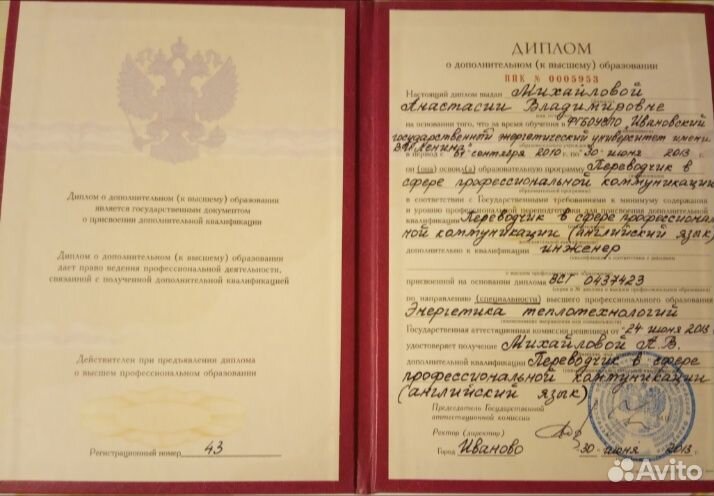 Диплом о дополнительном (к высшему) образовании
является государственным документом
о присвоении дополнительной квалификации
Диплом о дополнительном (к высшему) образовании
дает право ведения профессиональной деятельности,
связанной с полученной дополнительной квалификацией
Действителен при предъявлении диплома
о высшем профессиональном образовании
Регистрационный номер 43
ДИПЛОМ
о дополнительном (к высшему) образовании
ППК № 0005953
Настоящий диплом выдан Михайловой
Анастасии Владимировне
на основании того, что за время обучения в ФГБОУВПО "Ивановский
государственный энергетический университет имени
В.И. Ленина"
в период с 01 сентября 2010 г. по 30 июня 2013 г.
он (она) освоил(а) образовательную программу Переводчик в
сфере профессиональной коммуникации
в соответствии с Государственными требованиями к минимуму содержания
и уровню профессиональной переподготовки для присвоения дополнительной
квалификации Переводчик в сфере профессиональ-
ной коммуникации (английский язык)
дополнительно к квалификации инженер
присвоенной на основании диплома ВСГ 0437423
по направлению (специальности) высшего профессионального образования
Энергетика теплотехнологий
Государственная аттестационная комиссия решением от 24 июня 2013
удостоверяет получение Михайловой А.В.
дополнительной квалификации Переводчик в сфере
профессиональной коммуникации
(английский язык)
Председатель Государственной
аттестационной комиссии
Ректор (директор)
Город Иваново 30 июня 2013
Avito